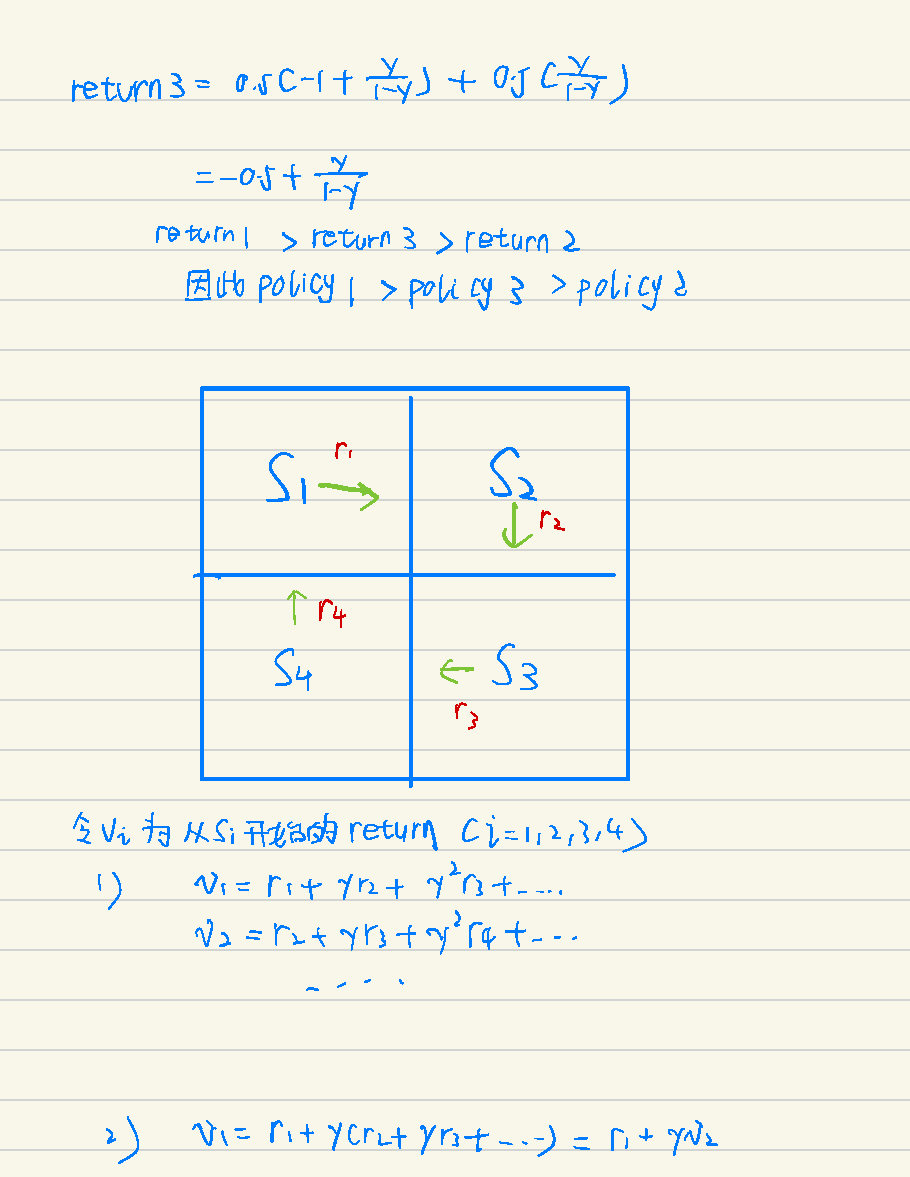 return 3 = 0.5(-1 + γ/(1-γ)) + 0.5(γ/(1-γ))
= -0.5 + γ/(1-γ)
return 1 > return 3 > return 2
因此 policy 1 > policy 3 > policy 2
S1 r1
S2
r2
r4
S4
S3
r3
令 Vi 为从 Si 开始的 return (i=1,2,3,4)
1) V1 = r1 + γr2 + γ²r3 + ....
V2 = r2 + γr3 + γ²r4 + ....
....
2) V1 = r1 + γ(r2 + γr3 + ....) = r1 + γV2